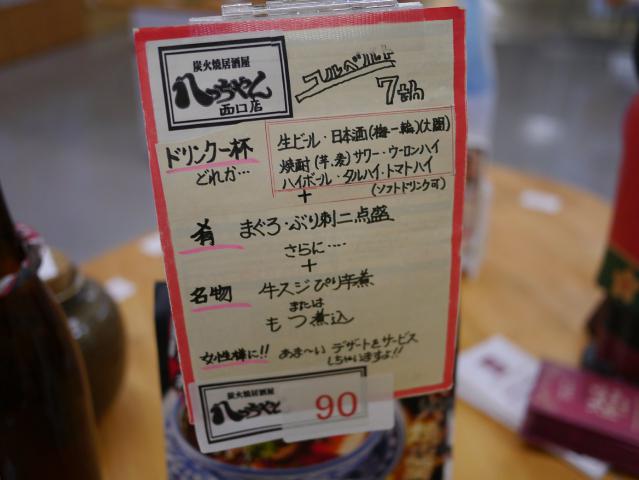 炭火焼居酒屋
八っちゃん
西口店
コルベルト
7th
ドリンク一杯
どれか…
生ビール・日本酒(梅一輪)(大関)
焼酎(芋.麦)サワー・ウーロンハイ
ハイボール・タルハイ・トマトハイ
(ソフトドリンク可)
+
肴 まぐろ・ぶり刺二点盛
さらに‥‥
+
名物 牛スジぴり辛煮
または
もつ煮込
女性様に!! あま〜い デザートをサービス
しちゃいますよ!!
炭火焼居酒屋
八っちゃん
90